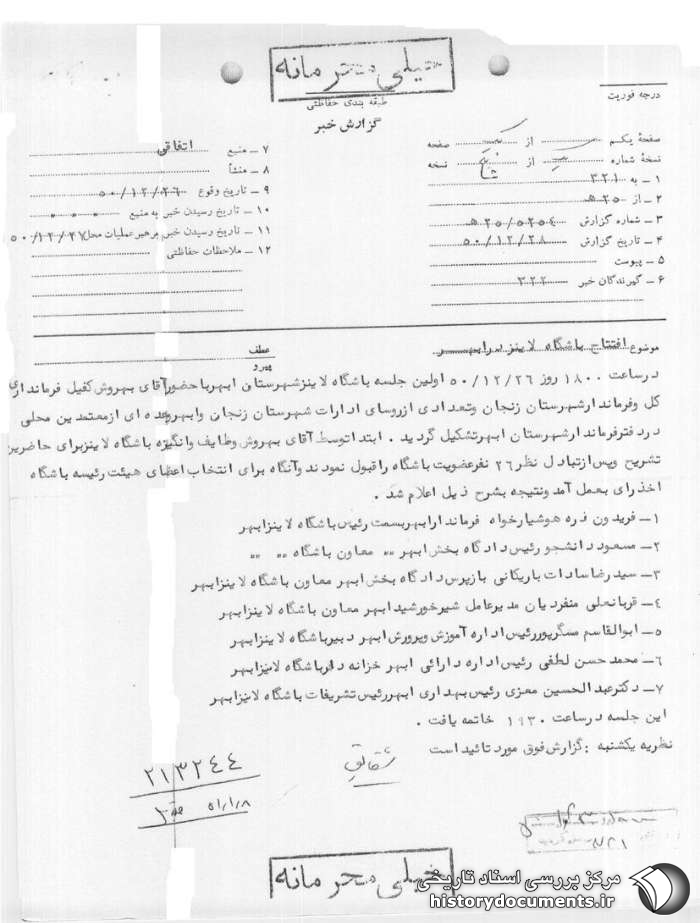 خیلی محرمانه
طبقه بندی حفاظتی
درجه فوریت
گزارش خبر
صفحهٔ یکم از یک صفحه
نسخهٔ شماره از نسخه
۱ ــ به ۳۲۱
۲ ــ از ۲۵ هـ
۳ ــ شماره گزارش ۲۵/۵۲۵٤ هـ
۴ ــ تاریخ گزارش ۵۰/۱۲/۲۸
۵ ــ پیوست
۶ ــ گیرندگان خبر ۳۲۲
۷ ــ منبع اتفاقی
۸ ــ منشأ
۹ ــ تاریخ وقوع ۵۰/۱۲/۲۶
۱۰ ــ تاریخ رسیدن خبر به منبع
۱۱ ــ تاریخ رسیدن خبر برهبر عملیات محل ۵۰/۱۲/۲۷
۱۲ ــ ملاحظات حفاظتی
موضوع افتتاح باشگاه لاینز در ابهر
عطف
پیرو
در ساعت ۱۸۰۰ روز ۵۰/۱۲/۲۶ اولین جلسه باشگاه لاینز شهرستان ابهر با حضور آقای بهروش کفیل فرمانداری
کل و فرماندار شهرستان زنجان و تعدادی از روسای ادارات شهرستان زنجان و ابهر و عده ای از معتمدین محلی
در دفتر فرماندار شهرستان ابهر تشکیل گردید . ابتدا توسط آقای بهروش وظایف و انگیزه باشگاه لاینز برای حاضرین
تشریح و پس از تبادل نظر ۲۶ نفر عضویت باشگاه را قبول نمودند و آنگاه برای انتخاب اعضای هیئت رئیسه باشگاه
اخذ رای بعمل آمد و نتیجه بشرح ذیل اعلام شد .
۱ــ فریدون فره هوشیارخواه فرماندار ابهر بسمت رئیس باشگاه لاینز ابهر
۲ــ مسعود دانشجو رئیس دادگاه بخش ابهر ,, معاون باشگاه ,, ,,
۳ــ سید رضا سادات باریکانی بازپرس دادگاه بخش ابهر معاون باشگاه لاینز ابهر
۴ــ قربانعلی منفردیان مدیرعامل شیر خورشید ابهر معاون باشگاه لاینز ابهر
۵ــ ابوالقاسم عسگرپور رئیس اداره آموزش و پرورش ابهر دبیر باشگاه لاینز ابهر
۶ــ محمد حسن لطفی رئیس اداره دارائی ابهر خزانه دار باشگاه لاینز ابهر
۷ــ دکتر عبدالحسین معزی رئیس بهداری ابهر رئیس تشریفات باشگاه لاینز ابهر
این جلسه در ساعت ۱۹۳۰ خاتمه یافت .
نظریه یکشنبه : گزارش فوق مورد تائید است
شقایق
۲۱۳۲٤٤
۵۱/۱/۸
خیلی محرمانه
مرکز بررسی اسناد تاریخی
historydocuments.ir